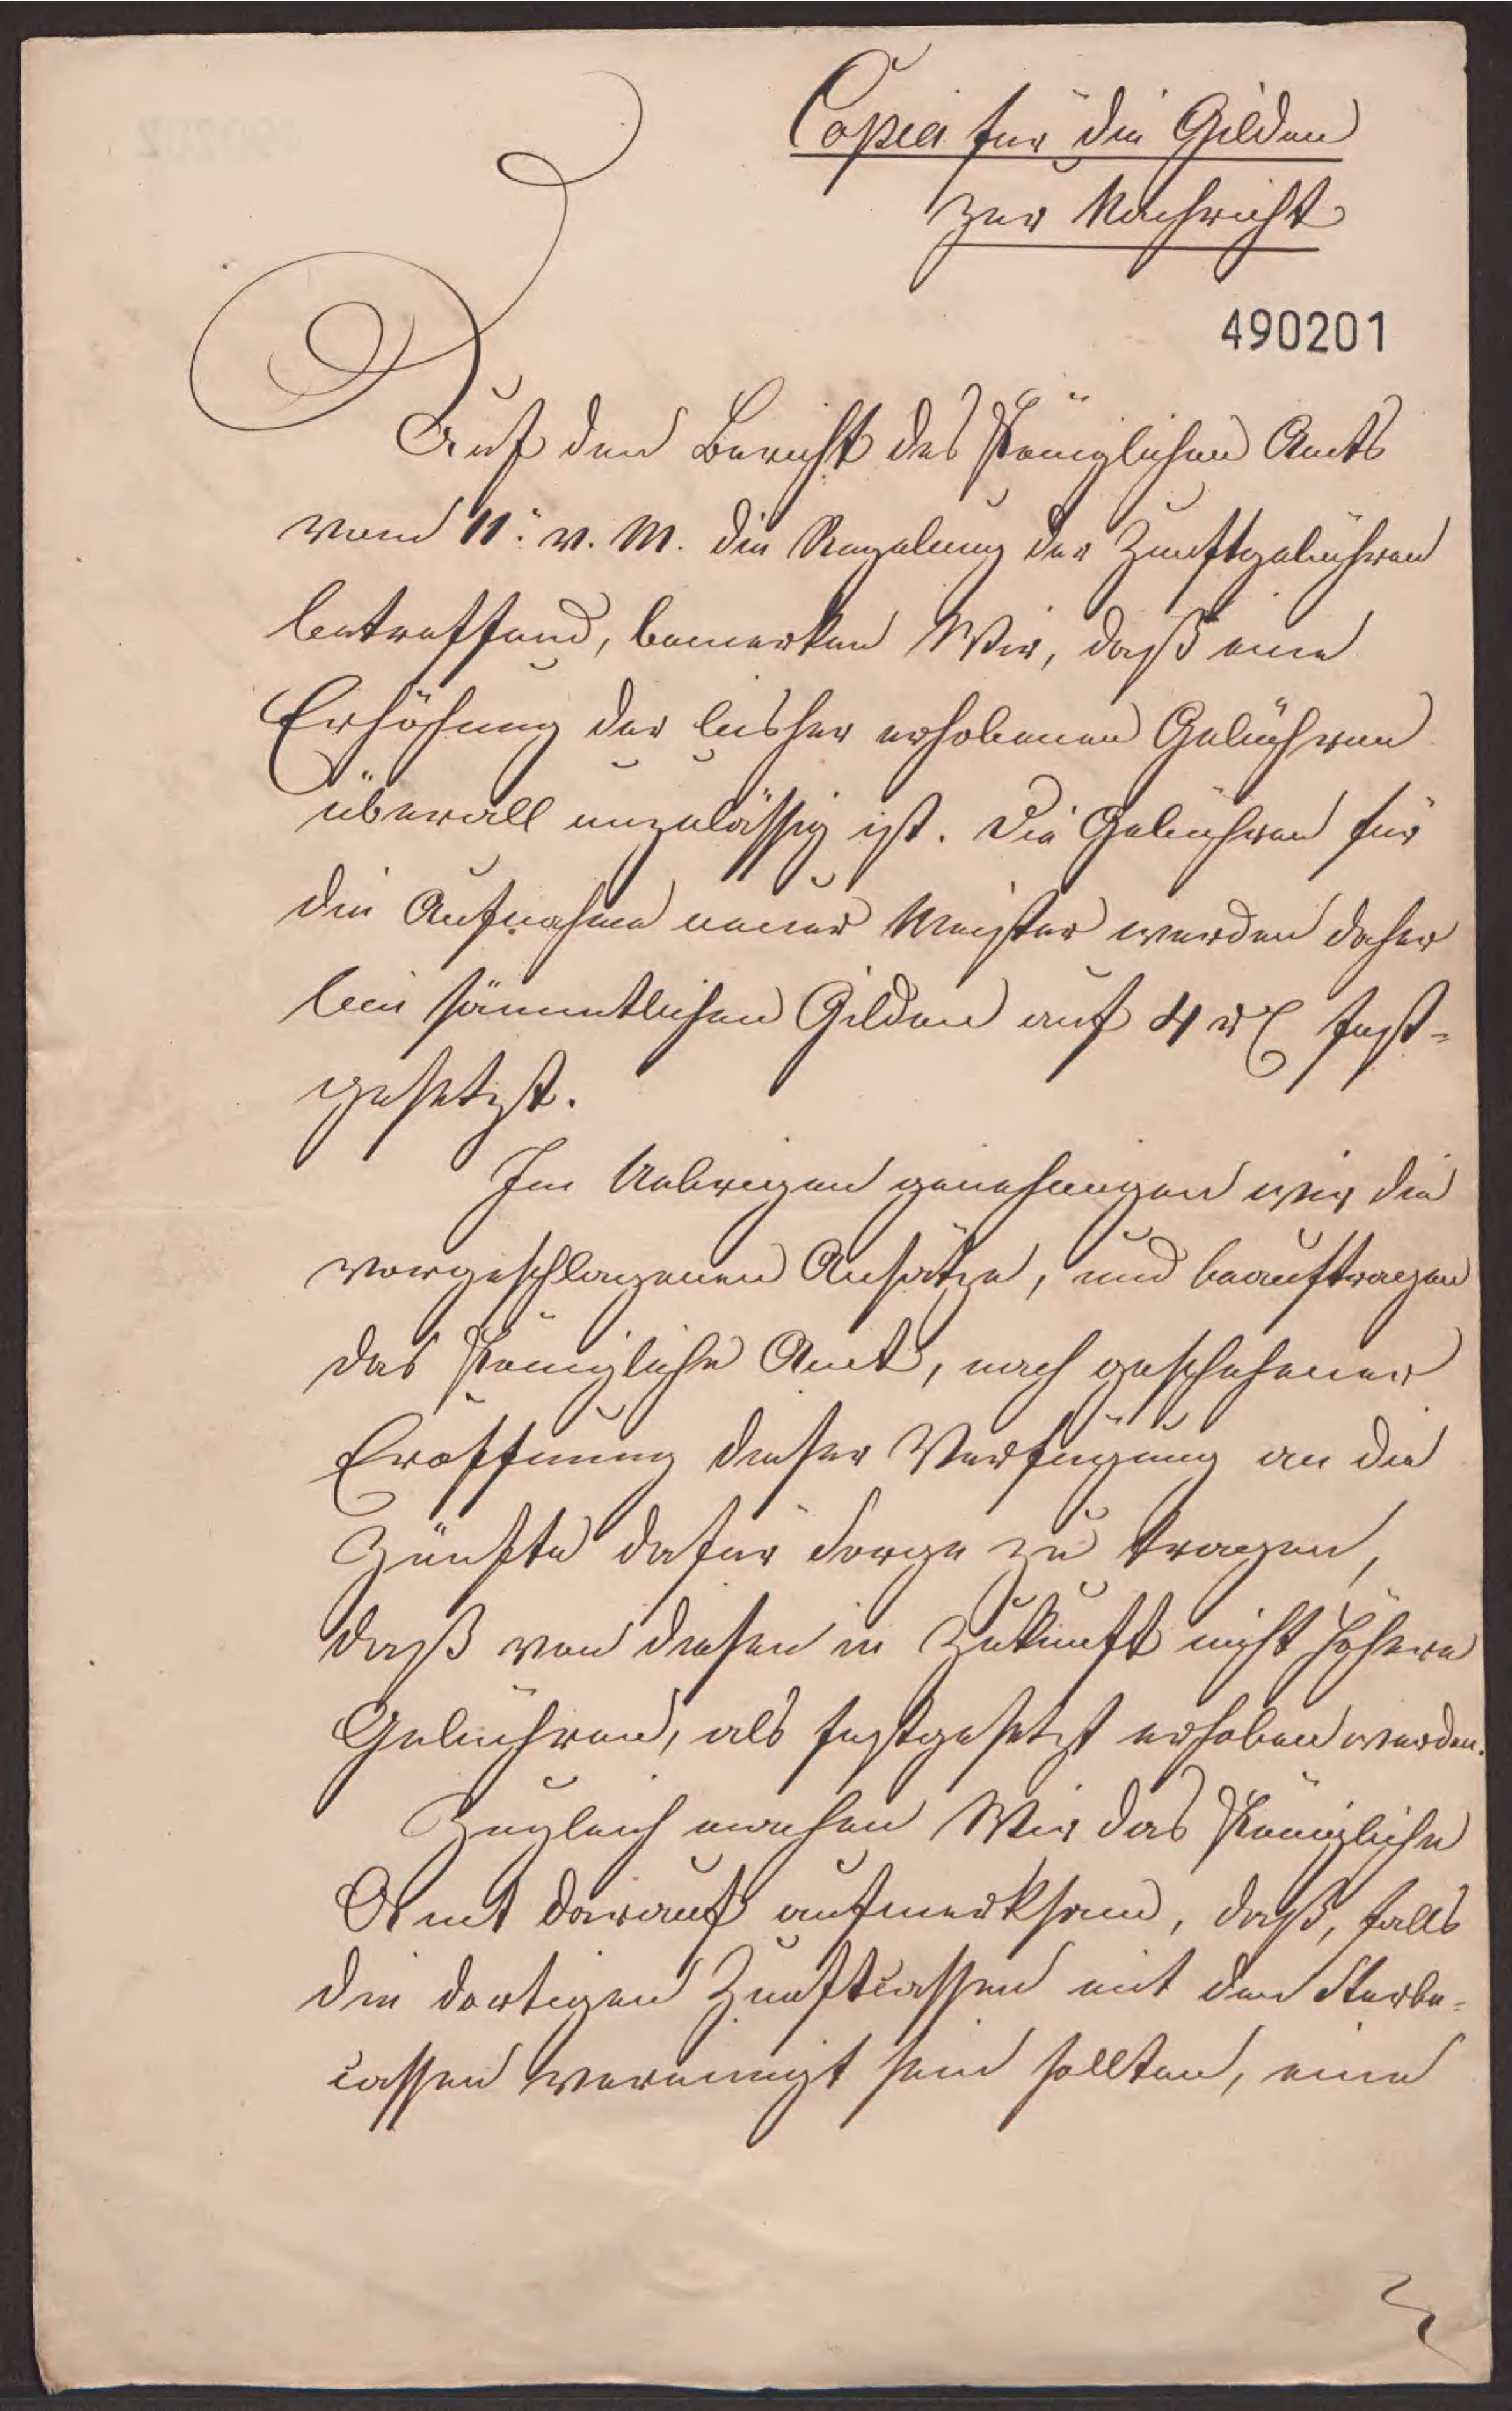 Copia für die Gilden
zur Nachricht
490201
Auf den Bericht des Königlichen Amts
vom 11. v. M. die Regelung der Zunftgebühren
betreffend, bemerken Wir, daß eine
Erhöhung der bisher erhobenen Gebühren
überall unzulässig ist. Die Gebühren für
die Aufnahme neuer Meister werden daher
bei sämmtlichen Gilden auf 4 rℓ fest-
gesetzt.
Im Uebrigen genehmigen wir die
vorgeschlagenen Ansätze, und beauftragen
das Königliche Amt, nach geschehener
Eröffnung dieser Verfügung an die
Zünfte dafür Sorge zu tragen,
daß von diesen in Zukunft nicht höhere
Gebühren, als festgesetzt erhoben werden.
Zugleich machen Wir das Königliche
Amt darauf aufmerksam, daß, falls
die dortigen Zunftcassen mit den Sterbe-
cassen vereinigt sein sollten, eine